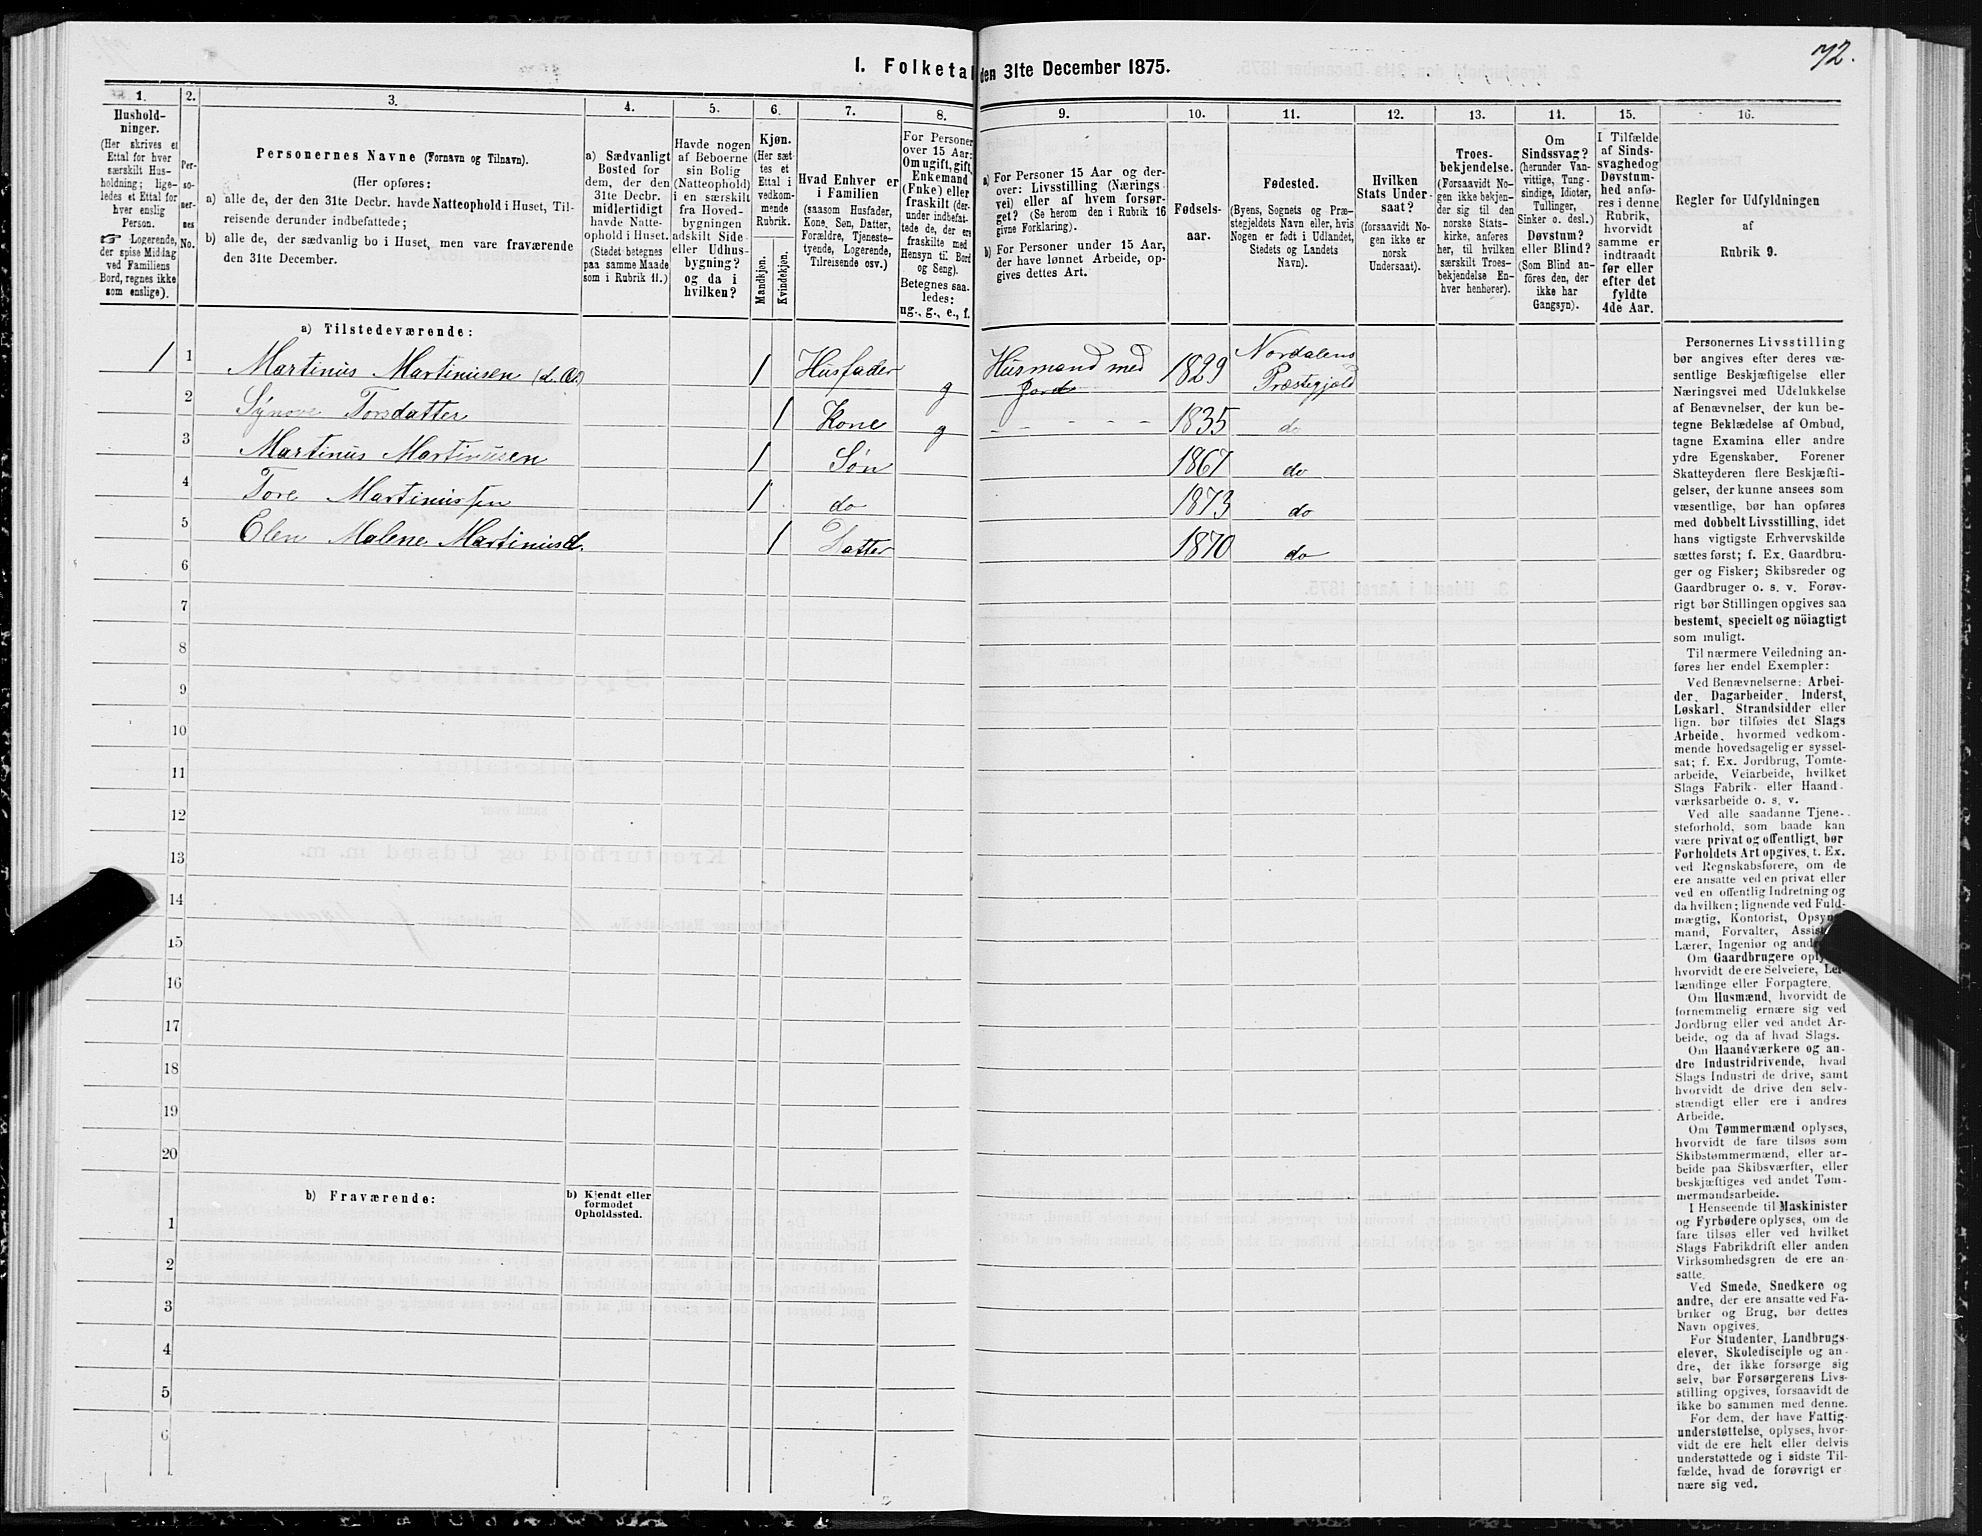 72.
I. Folketal den 31te December 1875.
1.
Hushold-
ninger.
(Her skrives et
Ettal for hver
særskilt Hus-
holdning; lige-
ledes et Ettal for
hver enslig
Person.
☞ Logerende,
der spise Middag
ved Familiens
Bord, regnes ikke
som enslige).
2.
Per-
so-
ner-
nes
No.
3.
Personernes Navne (Fornavn og Tilnavn).
(Her opføres:
a) alle de, der den 31te Decbr. havde Natteophold i Huset, Til-
reisende derunder indbefattede;
b) alle de, der sædvanlig bo i Huset, men vare fraværende
den 31te December.
4.
a) Sædvanligt
Bosted for
dem, der den
31te Decbr.
midlertidigt
havde Natte-
ophold i Huset.
(Stedet betegnes
paa samme Maade
som i Rubrik 11.)
5.
Havde nogen
af Beboerne
sin Bolig
(Natteophold)
i en særskilt
fra Hoved-
bygningen
adskilt Side-
eller Udhus-
bygning?
og da i
hvilken?
6.
Kjøn.
(Her sæt-
tes et
Ettal i
vedkom-
mende
Rubrik.
Mandkjøn.
Kvindekjøn.
7.
Hvad Enhver er
i Familien
(saasom Husfader,
Kone, Søn, Datter,
Forældre, Tjeneste-
tyende, Logerende,
Tilreisende osv.)
8.
For Personer
over 15 Aar:
Om ugift, gift,
Enkemand
(Enke) eller
fraskilt (der-
under indbefat-
tede de, der ere
fraskilte med
Hensyn til Bord
og Seng).
Betegnes saa-
ledes:
ug., g., e., f.
9.
a) For Personer 15 Aar og der-
over: Livsstilling (Nærings-
vei) eller af hvem forsør-
get? (Se herom den i Rubrik 16
givne Forklaring).
b) For Personer under 15 Aar,
der have lønnet Arbeide, op-
gives dettes Art.
10.
Fødsels-
aar.
11.
Fødested.
(Byens, Sognets og Præ-
stegjeldets Navn eller, hvis
Nogen er født i Udlandet,
Stedets og Landets
Navn).
12.
Hvilken
Stats Under-
saat?
(forsaavidt No-
gen ikke er
norsk
Undersaat).
13.
Troes-
bekjendelse.
(Forsaavidt No-
gen ikke bekjen-
der sig til den
norske Stats-
kirke, anføres
her, til hvilken
særskilt Troes-
bekjendelse En-
hver henhører).
14.
Om
Sindssvag?
(herunder Van-
vittige, Tung-
sindige, Idioter,
Tullinger,
Sinker o. desl.)
Døvstum?
eller Blind?
(Som Blind an-
føres den, der
ikke har
Gangsyn).
15.
I Tilfælde
af Sinds-
svaghed og
Døvstum-
hed anfø-
res i denne
Rubrik,
hvorvidt
samme er
indtraadt
før eller
efter det
fyldte
4de Aar.
16.
Regler for Udfyldningen
af
Rubrik 9.
a) Tilstedeværende:
1 1 Martinus Martinusen (d. Æ.) 1 Husfader g Husmand med Jord 1829 Nordalens Præstegjeld
2 Synove Torsdatter 1 Kone g - - - - - 1835 do
3 Martinus Martinusen 1 Søn 1867 do
4 Tore Martinussen 1 do 1873 do
5 Elen Malene Martinusd. 1 Datter 1870 do
6
7
8
9
10
11
12
13
14
15
16
17
18
19
20
b) Fraværende:
b) Kjendt eller
formodet
Opholdssted.
1
2
3
4
5
6
Personernes Livsstilling
bør angives efter deres væ-
sentlige Beskjæftigelse eller
Næringsvei med Udelukkelse
af Benævnelser, der kun be-
tegne Beklædelse af Ombud,
tagne Examina eller andre
ydre Egenskaber. Forener
Skatteyderen flere Beskjæfti-
gelser, der kunne ansees som
væsentlige, bør han opføres
med dobbelt Livsstilling, idet
hans vigtigste Erhvervskilde
sættes først; f. Ex. Gaardbru-
ger og Fisker; Skibsreder og
Gaardbruger o. s. v. Forøv-
rigt bør Stillingen opgives saa
bestemt, specielt og nöiagtigt
som muligt.
Til nærmere Veiledning an-
føres her endel Exempler:
Ved Benævnelserne: Arbei-
der, Dagarbeider, Inderst,
Løskarl, Strandsidder eller
lign. bør tilføies det Slags
Arbeide, hvormed vedkom-
mende hovedsagelig er syssel-
sat; f. Ex. Jordbrug, Tomte-
arbeide, Veiarbeide, hvilket
Slags Fabrik- eller Haand-
værksarbeide o. s. v.
Ved alle saadanne Tjene-
steforhold, som baade kan
være privat og offentligt, bør
Forholdets Art opgives, t. Ex.
ved Regnskabsførere, om de
ere ansatte ved en privat eller
ved en offentlig Indretning og
da hvilken; lignende ved Fuld-
mægtig, Kontorist, Opsyns-
mand, Forvalter,
Lærer, Ingeniør og
Om Gaardbrugere
hvorvidt de ere Selveiere, Lei-
lændinge eller Forpagtere.
Om Husmænd, hvorvidt de
fornemmelig ernære sig ved
Jordbrug eller ved andet Ar-
beide, og da af hvad Slags.
Om Haandværkere og an-
dre Industridrivende, hvad
Slags Industri de drive, samt
hvorvidt de drive den selv-
stændigt eller ere i andres
Arbeide.
Om Tømmermænd oplyses,
hvorvidt de fare tilsøs som
Skibstømmermænd, eller ar-
beide paa Skibsværfter, eller
beskjæftiges ved andet Tøm-
mermandsarbeide.
I Henseende til Maskinister
og Fyrbødere oplyses, om de
fare tilsøs eller ved hvilket
Slags Fabrikdrift eller anden
Virksomhedsgren de ere an-
satte.
Ved Smede, Snedkere og
andre, der ere ansatte ved Fa-
briker og Brug, bør dettes
Navn opgives.
For Studenter, Landbrugs-
elever, Skoledisciple og an-
dre, der ikke forsørge sig
selv, bør Forsørgerens Livs-
stilling opgives, forsaavidt de
ikke bo sammen med denne.
For dem, der have Fattig-
understøttelse, oplyses, hvor-
vidt de ere helt eller delvis
understøttede og i sidste Til-
fælde, hvad de forøvrigt er-
nære sig ved.